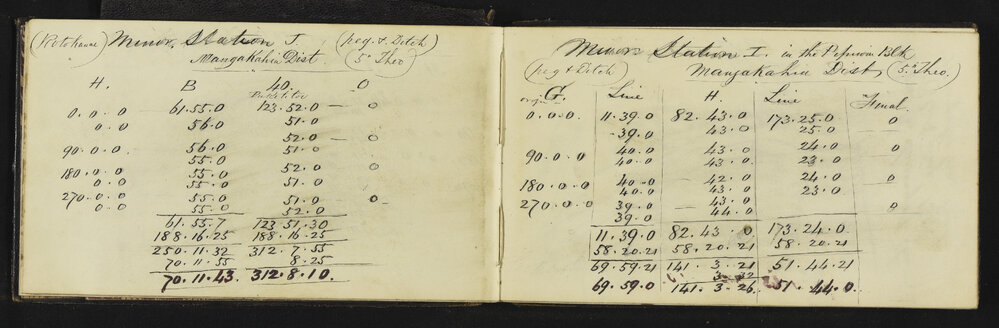 (Rotokauae) Minor Station J. (peg & Ditch)
Mangakahia Dist. (5" Theo)
H. B 40. 0
0.0.0 61.55.0 123.52.0 — 0
0.0 56.0 51.0
56.0 52.0 — 0
90.0.0 55.0 51.0
180.0.0 55.0 52.0 0
0.0 55.0 51.0
270.0.0 55.0 51.0 0
0.0 55.0 52.0
61.55.7 123 51.30
188.16.25 188.16.25
250.11.32 312.7.55
70.11.55 8.25
70.11.43. 312.8.10.
Minor Station I. in the Blk
(peg & Ditch) Mangakahia Dist (5" Theo.)
G. Line H. Line Final.
0.0.0. 11.39.0 82.43.0 173.25.0 0
39.0 43.0 25.0
90.0.0 40.0 43.0 24.0 0
40.0 43.0 23.0
180.0.0 40.0 42.0 24.0 0
40.0 43.0 23.0
270.0.0 39.0 43.0 0
39.0 44.0
11.39.0 82.43.0 173.24.0
58.20.21 58.20.21 58.20.21
69.59.21 141.3.21 51.44.21
3.32
69.59.0 141.3.26 51.44.0.